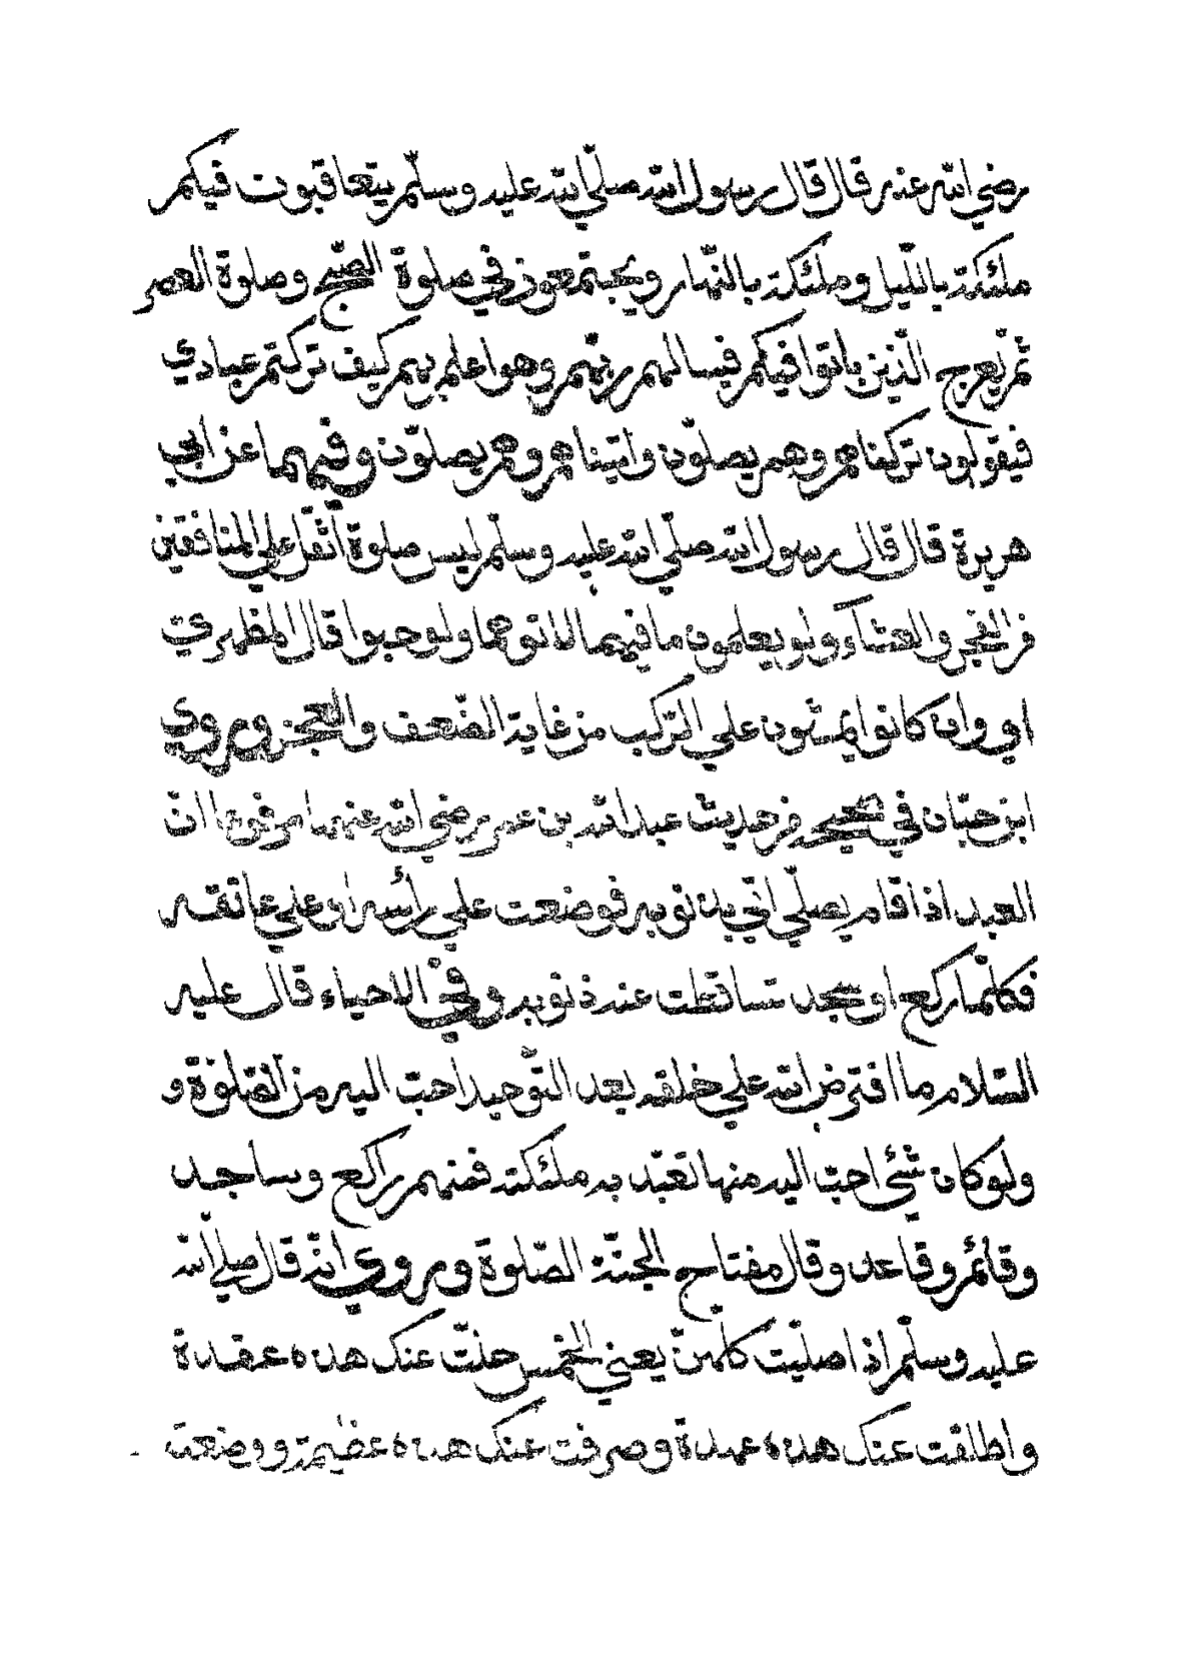 رضي الله عنه قال قال رسول الله صلّي الله عليه وسلّم يتعاقبون فيكم
ملئكة بالّليل وملئكة بالنّهار ويجتمعون في صلوة الصّبح وصلوة العصر
ثم يعرج الّذين باتوا فيكم فيسالهم ربّهم وهو اعلم بهم كيف تركتم عبادي
فيقولون تركناهم وهم يصلّون واتيناهم وهم يصلّون وفيهما عن ابي
هريرة قال قال رسول الله صلّي الله عليه وسلّم ليس صلوة اثقل علي المنافقين
من الفجر والعشاء ولو يعلمون ما فيهما لاتوهما ولو حبوا قال المظهري
اي وان كانوا يمشون علي الرّكب من غاية الضّعف والعجز وروي
ابن حبّان في صحيحه من حديث عبد الله بن عمر رضي الله عنهما مرفوعا انّ
العبد اذا قام يصلّي اتي بذنوبه فوضعت علي رأسه او علي عاتقه
فكلّما ركع او سجد تساقطت عنه ذنوبه وفي الاحياء قال عليه
السّلام ما افترض الله علي خلقه بعد التّوحيد احبّ اليه من الصّلوة و
ولو كان شئ احبّ اليه منها تعبّد به ملئكته فمنهم راكع وساجد
وقائم وقاعد وقال مفتاح الجنّة الصّلوة وروي انه قال صلي الله
عليه وسلّم اذا صلّيت كلهنّ يعني الخمس حلّت عنك هذه عقدة
واطلقت عنك هذه عهدة وصرفت عنك هذه عظيمة ووضعت